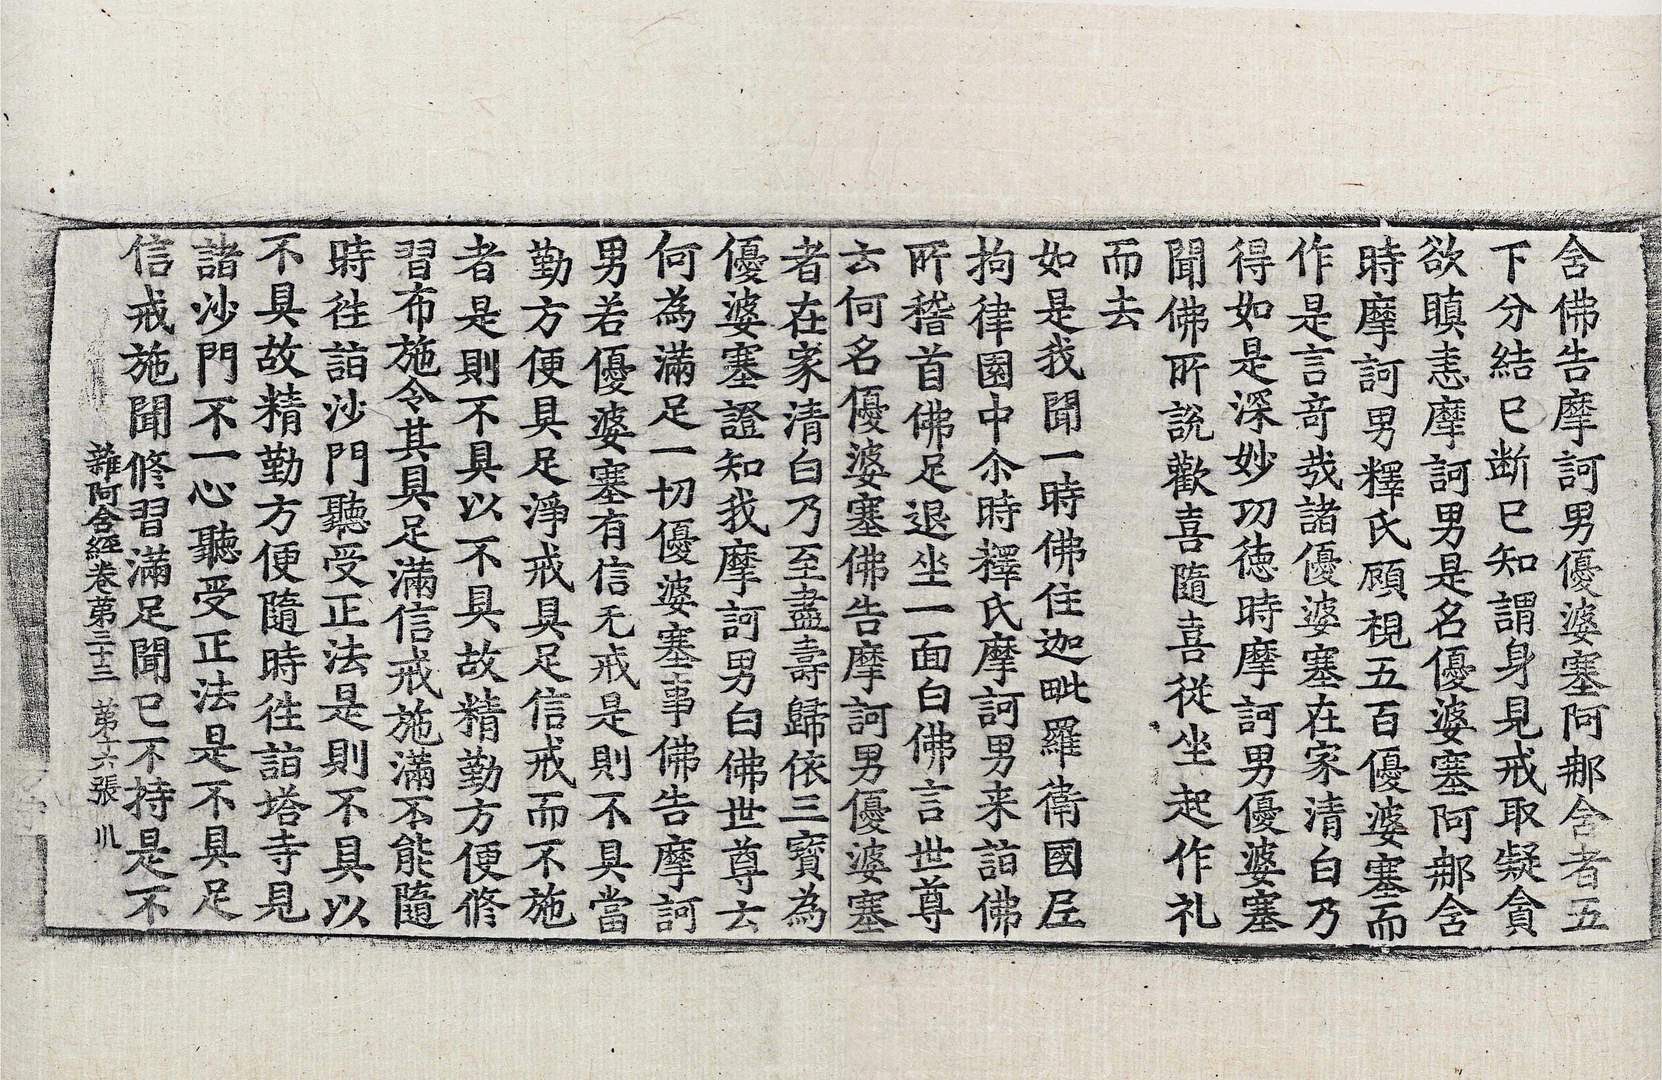 舍佛告摩訶男優婆塞阿那舍者五
下分結已断已知謂身見戒取疑貪
欲瞋恚摩訶男是名優婆塞阿那含
時摩訶男釋氏顧視五百優婆塞而
作是言竒㢤諸優婆塞在家清白乃
得如是深妙功徳時摩訶男優婆塞
聞佛所說歡喜隨喜従坐起作礼
而去
如是我聞一時佛住迦毗羅衛國尼
拘律園中尒時釋氏摩訶男来詣佛
所稽首佛足退坐一面白佛言世尊
云何名優婆塞佛告摩訶男優婆塞
者在家清白乃至盡壽歸依三寳為
優婆塞證知我摩訶男白佛世尊云
何為滿足一切優婆塞事佛告摩訶
男若優婆塞有信无戒是則不具當
勤方便具足淨戒具足信戒而不施
者是則不具以不具故精勤方便修
習布施令其具足滿信戒施滿不能隨
時徃詣沙門聽受正法是則不具以
不具故精勤方便隨時徃詣塔寺見
諸沙門不一心聽受正法是不具足
信戒施聞修習滿足聞已不持是不
雜阿含經卷第三十三 第十六張 川